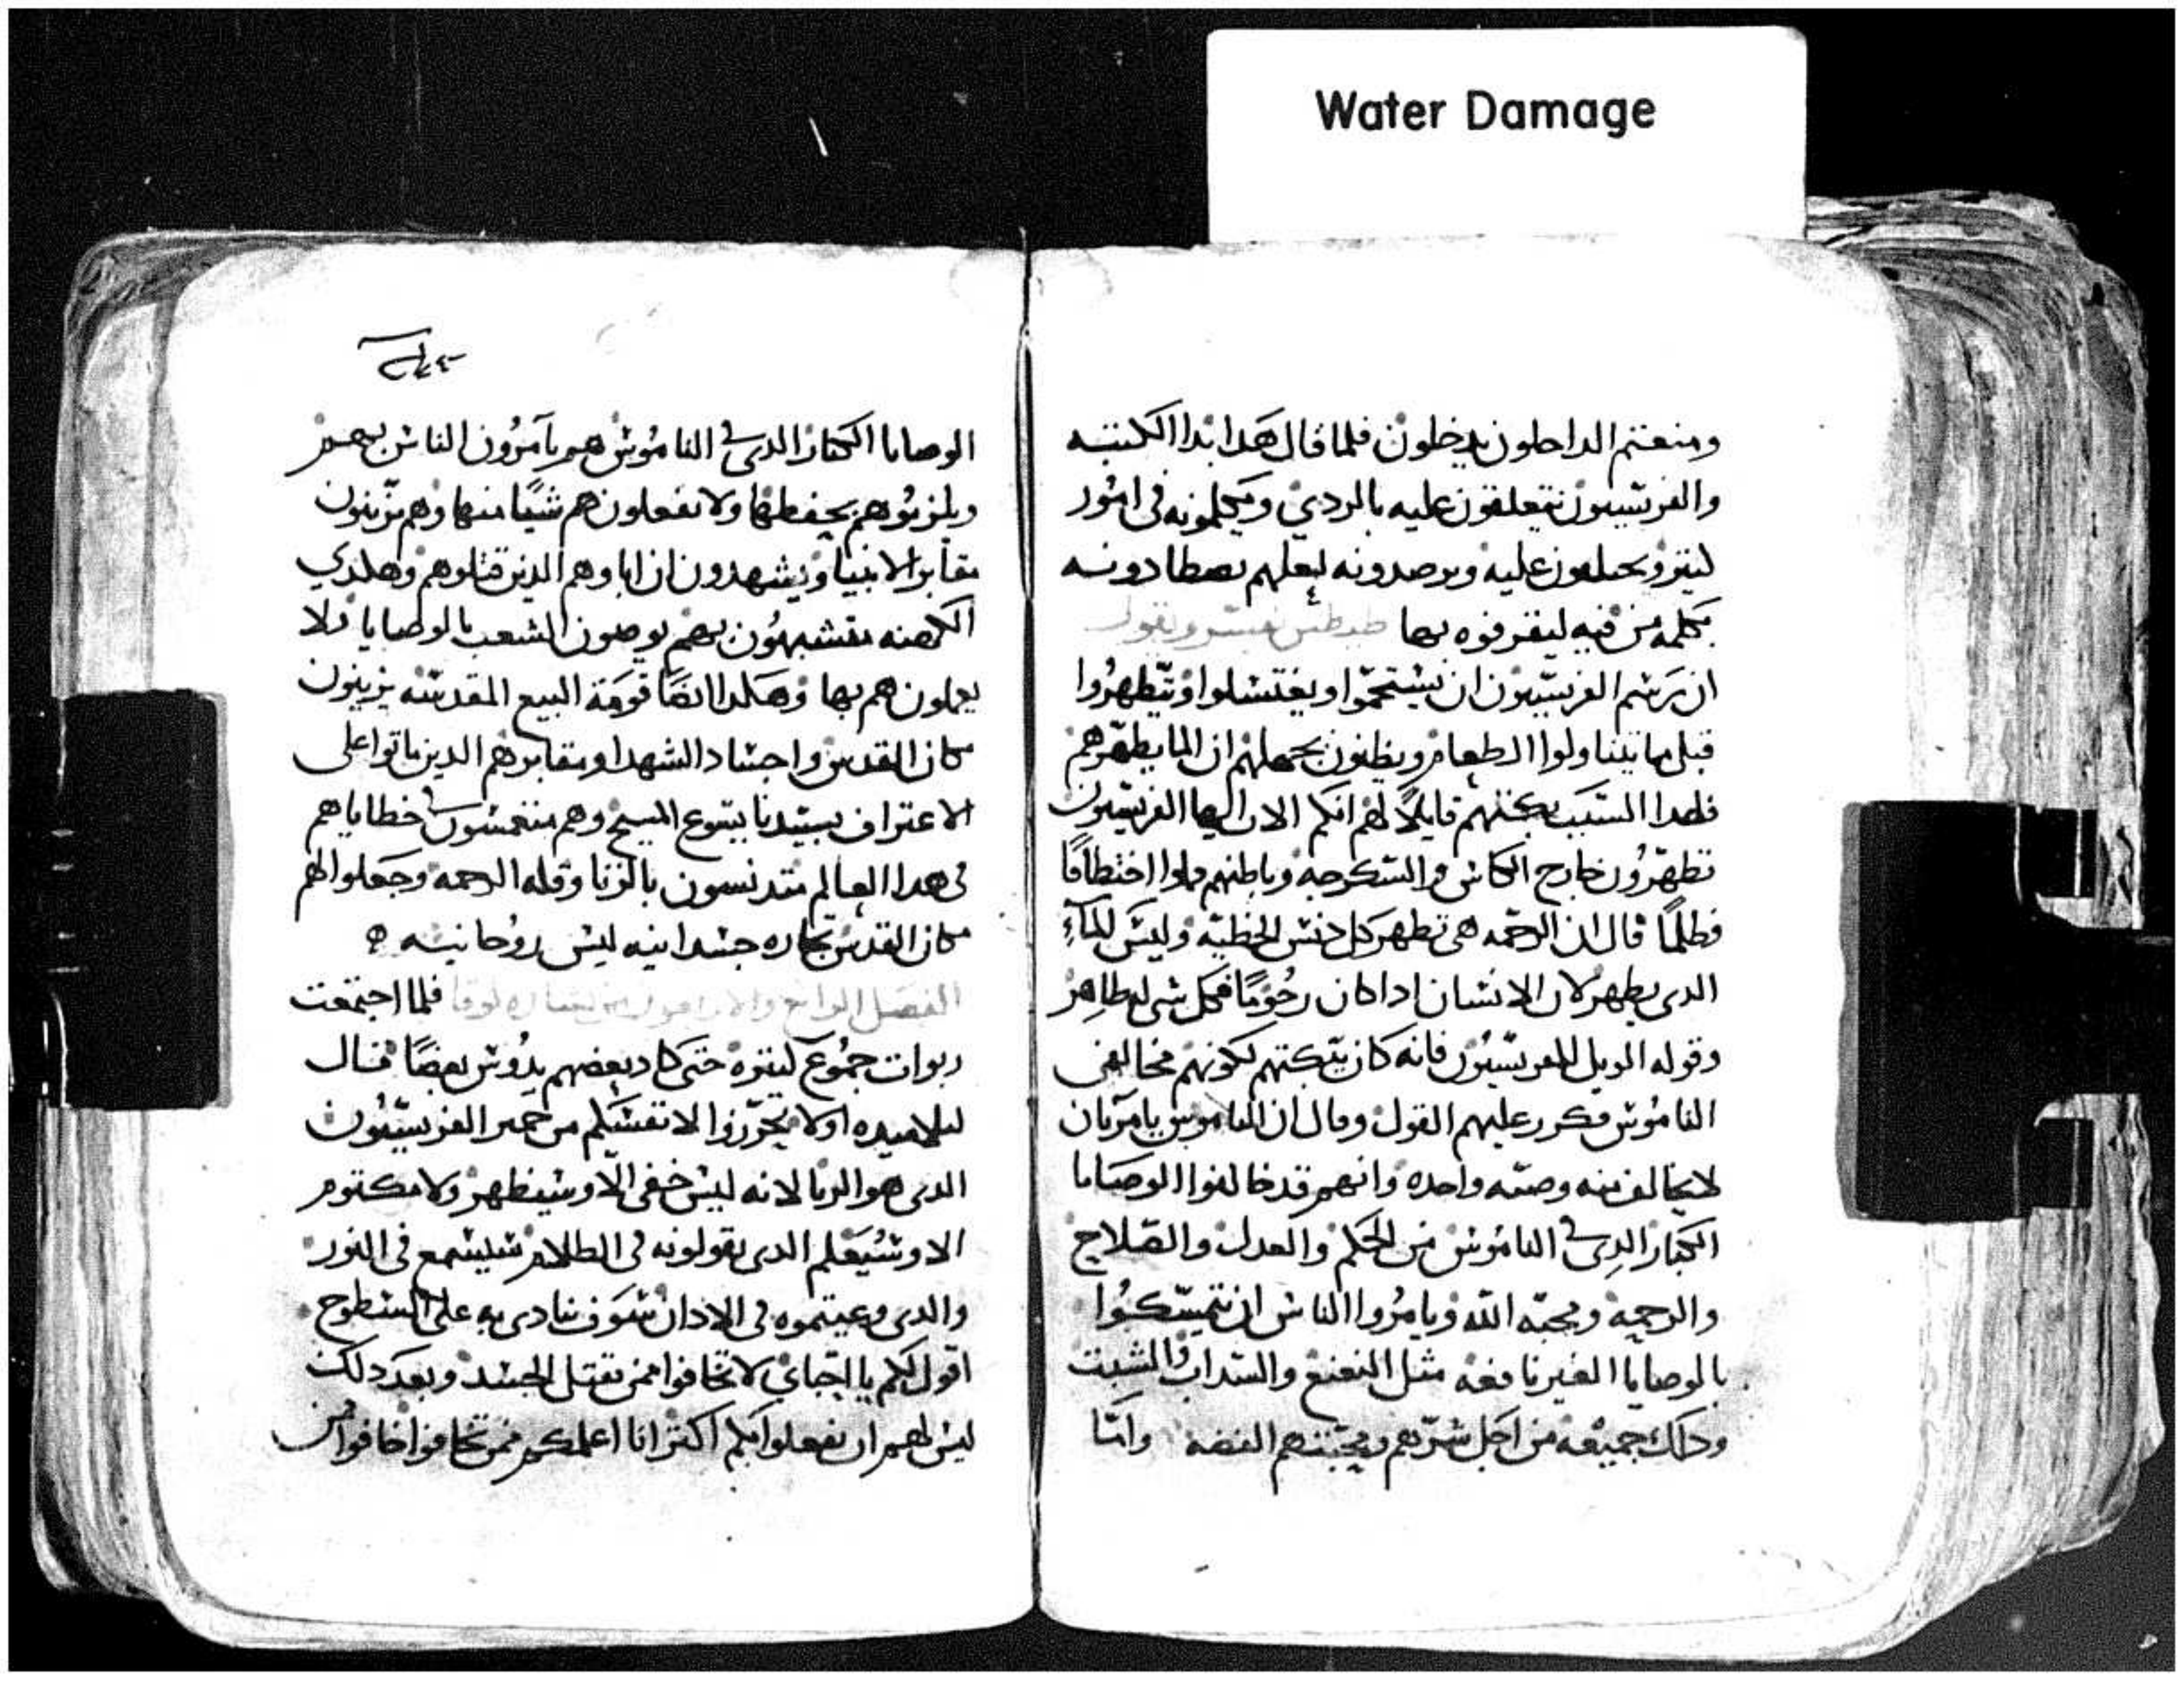 Water Damage
ومنعتم الداخلون يدخلون فلما قال هدا ابدا الكتبه
والفريسيون يتعلقون عليه بالردي ويكلمونه في امور
كثيره ويحتلون عليه ويرصدونه لعلهم يصطادونه
بكلمه من فيه ليقرفوه بها طيطس يفسر ويقول
ان رسم الفريسيون ان يستحموا او يغتسلوا او يتطهروا
قبل ما يتناولوا الطعام ويظنون بجهلهم ان الما يطهرهم
فلهدا السبب بكتهم قايلا لهم انكم الان ايها الفريسيون
تطهرون خارج الكاس والسكرجه وباطنهم مملوا اختطافا
وظلما قال ان الرحمه هي تطهر كل دنس الخطيه وليس الماء
الدي يطهر لان الانسان ادا كان رحوما فكل شي له طاهر
وقوله الويل للفريسيون فانه كان يبكتهم لكونهم مخالفي
الناموس فكرر عليهم القول وقال ان الناموس يامر بان
لا يخالف منه وصيه واحده وانهم قد خالفوا الوصايا
الكبار الدي في الناموس من الحكم والعدل والصلاح
والرحمه ومحبه الله ويامروا الناس ان يتمسكوا
بالوصايا الغير نافعه مثل النعنع والسداب والشبت
ودلك جميعه من اجل شرهم ومحبتهم الفضه وامّا
الوصايا الكبار الدي في الناموس هم يآمرون الناس بهم
ويلزموهم بحفظها ولا يفعلون هم شيًا منها وهم يزينون
مقابر الانبيا ويشهدون ان اباوهم الدين قتلوهم وهكدي
الكهنه يتشبهون بهم يوصون الشعب بالوصايا ولا
يعملون هم بها وهكدا ايضا قومة البيع المقدسه يزينون
مكان القديسين واجساد الشهدا ومقابرهم الدين ماتوا على
الاعتراف بسيدنا يسوع المسيح وهم منغمسون في خطاياهم
في هدا العالم متدنسون بالزنا وقله الرحمه وجعلوا لهم
مكان القديسين تجاره جسدانيه ليس روحانيه
الفصل الرابع والاربعون من بشاره لوقا فلما اجتمعت
ربوات جموع كثيره حتى كاد بعضهم يدوس بعضا قال
لتلاميده اولا تحرزوا لانفسكم من خمير الفريسيون
الدي هو الريا لانه ليس خفي الا وسيظهر ولا مكتوم
الا وسيعلم الدي يقولونه في الظلام سيسمع في النور
والدي وعيتموه في الادان سوف ينادى به على السطوح
اقول لكم يا احباي لا تخافوا ممن يقتل الجسد وبعد دلك
ليس لهم ان يفعلوا بكم اكثر انا اعلمكم ممن تخافوا خافوا من